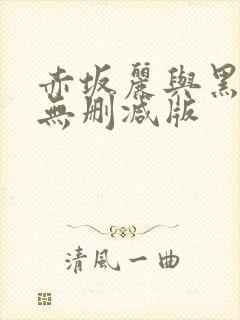 赤坂麗與黑
無删减版
清風一曲